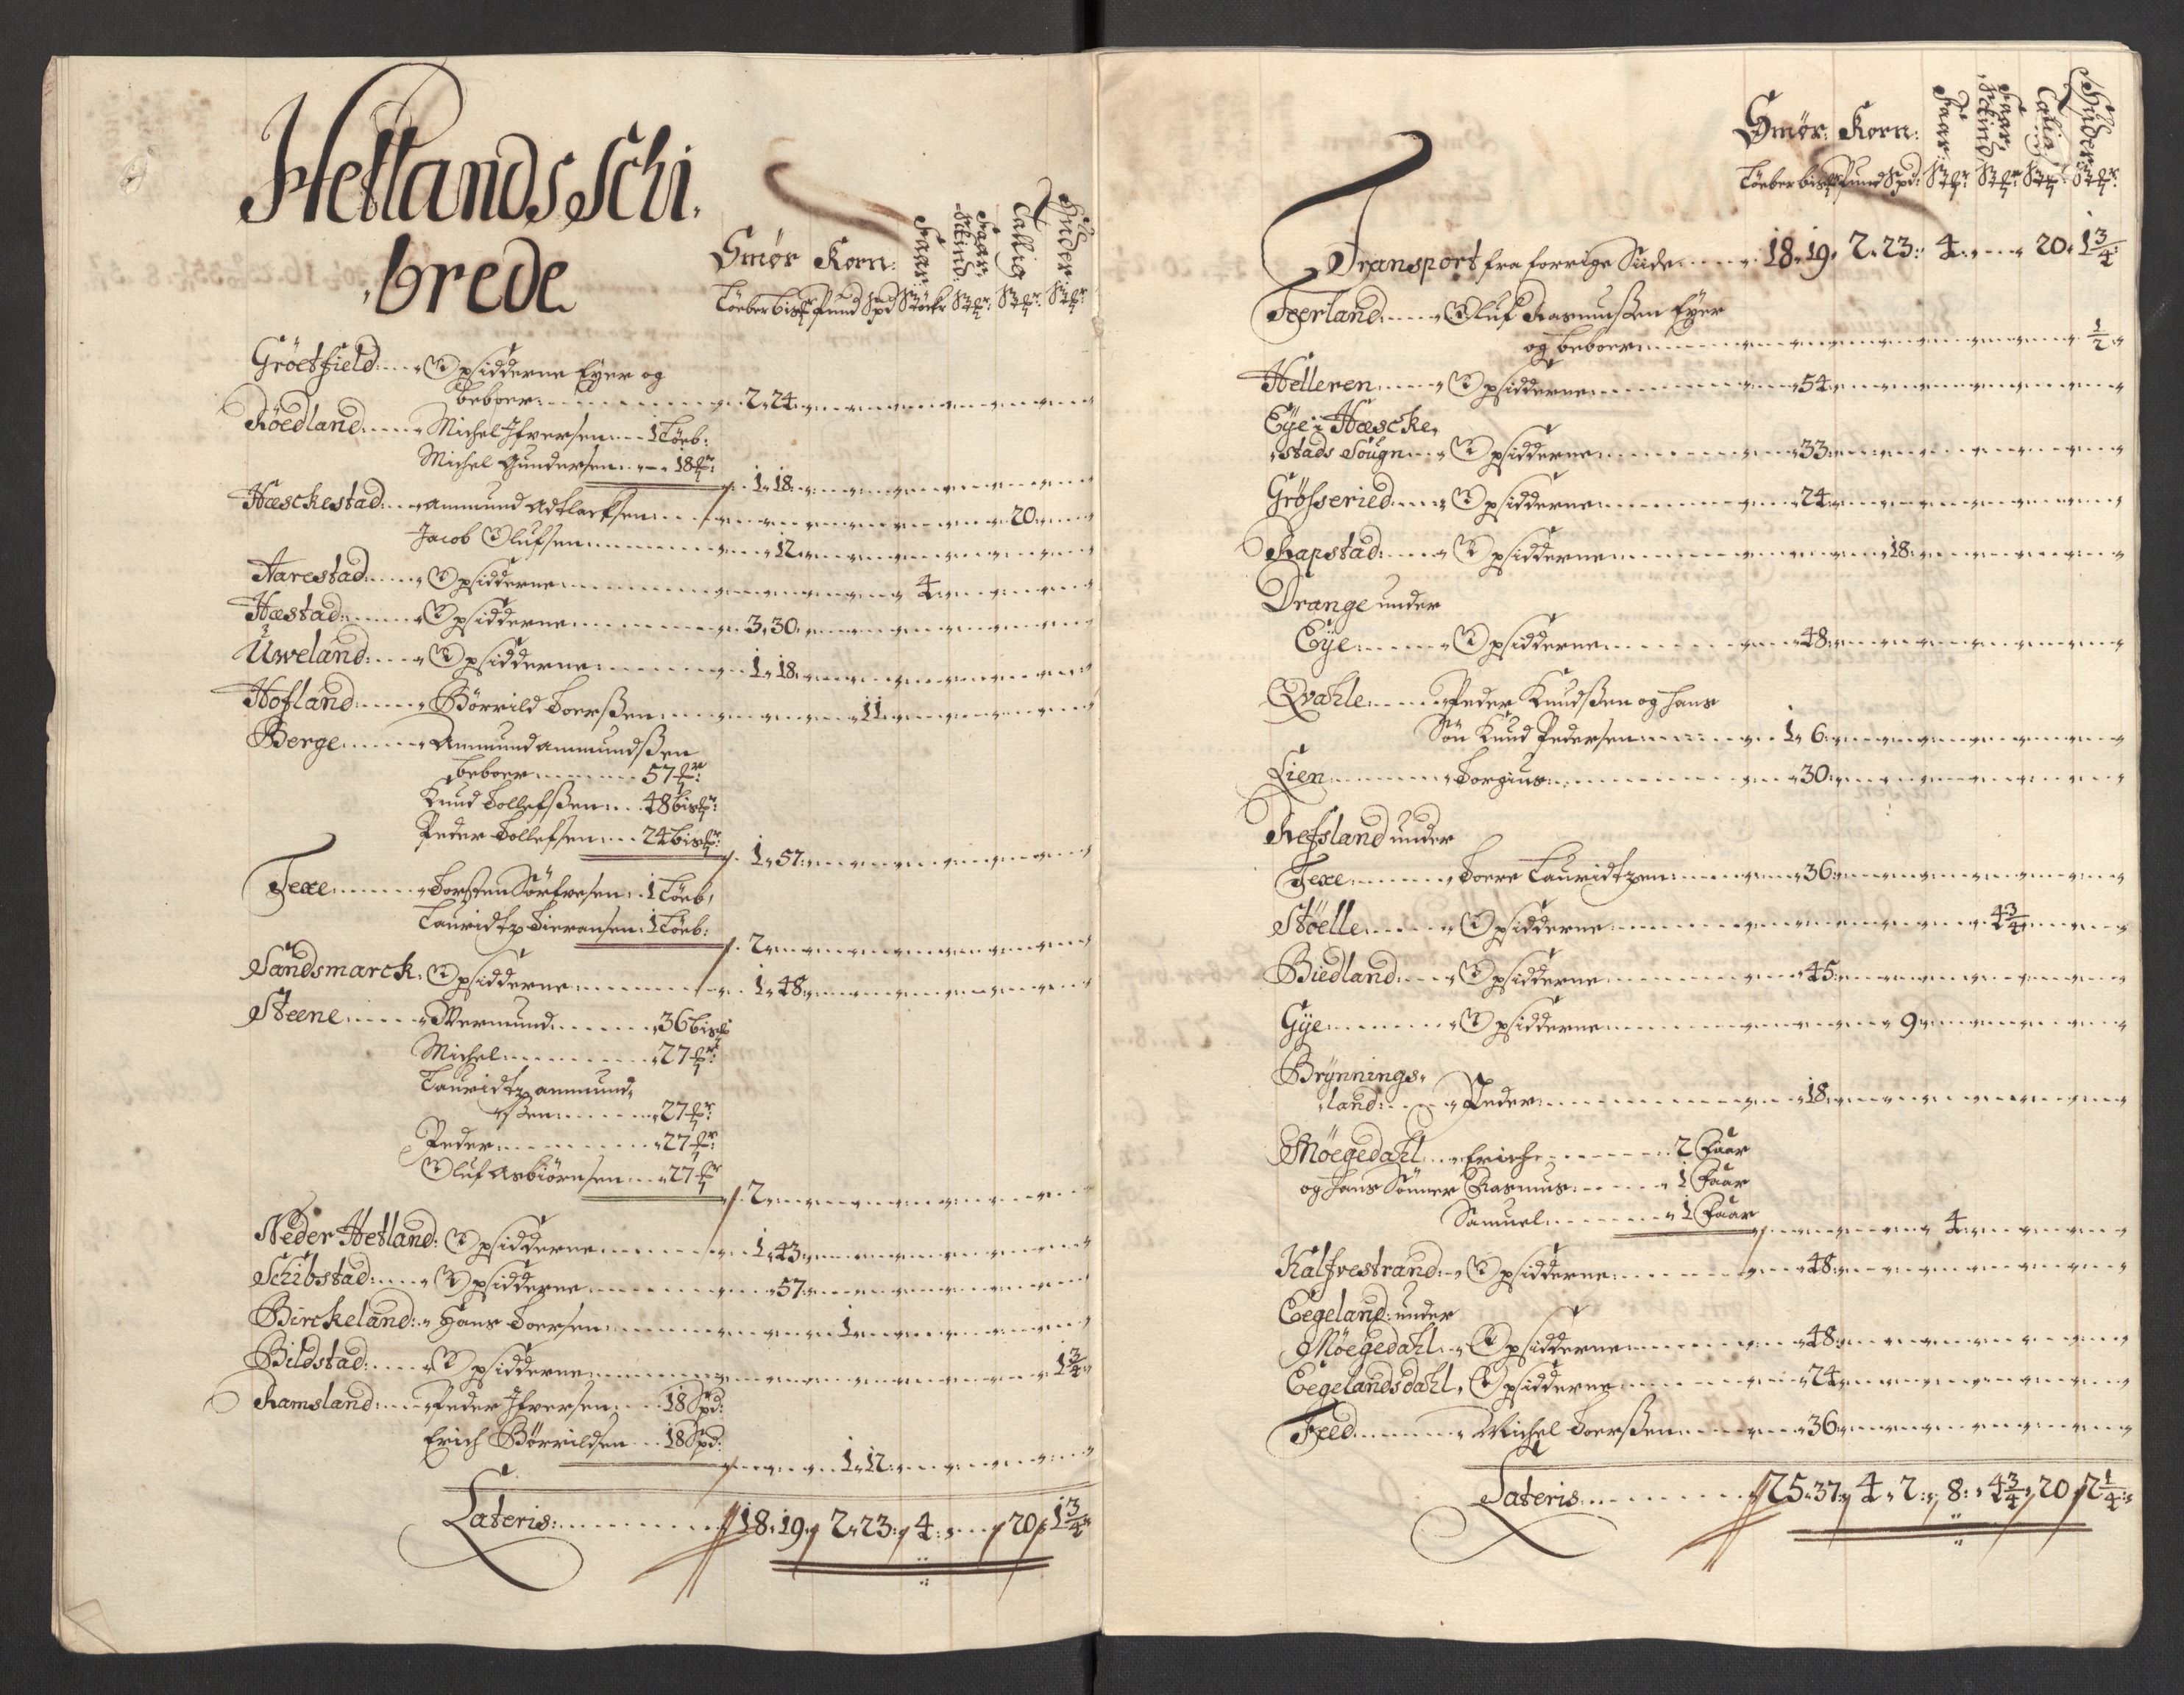 Hetlands Schi,
,brede
Smør Korn: Faar: Faar,schind: Callig Huder
Løeber bispr Pund Spd Støckr Støpr: Støpr: Støpr
Gröetfield: Opsidderne Eyer og
beboer 2 24
Röedland: Michel Ifversen 1 Løeb:
Michel Gundersen 18 pr: 1 18
Hæschestad: Ammund Adtlacksen 20
Jacob Olufsen 12
Aarestad: Opsidderne 4
Hæstad: Opsidderne 3 30
Uweland: Opsidderne 1 18
Hofland: Börrild Toerssen 11
Berge Ammund Ammundssen
beboer 57 pr:
Knud Tollefssen 48 bispr:
Peder Tollefsen 24 bispr: 1 57
Texe Torsten Sörfresen 1 Løeb,
Lauridtz Sieransen: 1 Løeb: 2
Sandsmarck: Opsidderne 1 48
Steene Wermund 36 bispr
Michel 27 pr:
Lauridtz Ammund,
,ssen 27 pr:
Peder 27 pr:
Oluf Asbiörnsen 27 pr 2
Neder Hetland: Opsidderne 1 43
Schibstad: Opsidderne 57
Birckeland: Hans Toersen 1
Bildstad: Opsidderne 1 3/4
Ramsland: Peder Ifversen 18 Spd:
Erich Börrildsen 18 Spd: 1 12
Lateris: 18 19 2 23 4 20 1 3/4
Smør: Korn: Faar: Faar,schind Callig Huder
Løeber bispr Pund Spd: Støpr: Støpr Støpr Støpr:
Transport fra forrige Side 18 19 2 23 4 20 1 3/4
Feerland Oluf Rasmussen Eyer
og beboer 1/2
Helleren Opsidderne 54
Eye i Hæscke,
,stads Sougn Opsidderne 33
Grösseried Opsidderne 24
Rapstad: Opsidderne 18
Drange under
Eye Opsidderne 48
Qvahle Peder Knudssen og hans
Sön Knud Pedersen 1 6
Lien Torgius 30
Refsland under
Texe Toere Lauridtzen 36
Stöelle Opsidderne 4 3/4
Biedland Opsidderne 45
Gye Opsidderne 9
Brynnings,
,land: Peder 18
Möegedahl Erich 2 Faar
og hans Sönner Rasmus 1 Faar
Samuel 1 Faar 4
Kalfvestrand Opsidderne 48
Eegeland: under
Möegedahl Opsidderne 48
Eegelandsdahl, Opsidderne 24
Feed Michel Toerssen 36
Lateris 25 37 4 2 8 4 3/4 20 2 1/4